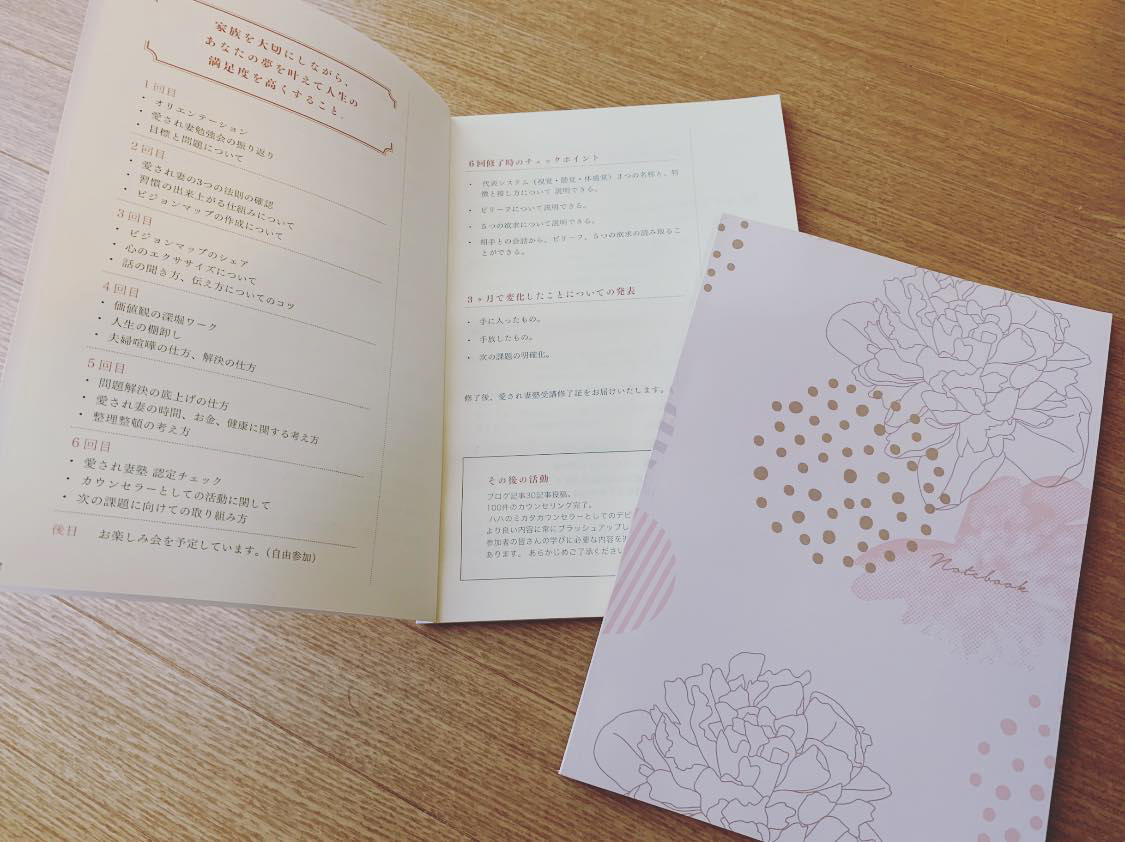 家族を大切にしながら、
あなたの夢を叶えて人生の
満足度を高くすること。
1回目
・オリエンテーション
・愛され妻勉強会の振り返り
・目標と問題について
2回目
・愛され妻の3つの法則の確認
・習慣の出来上がる仕組みについて
・ビジョンマップの作成について
3回目
・ビジョンマップのシェア
・心のエクササイズについて
・話の聞き方、伝え方についてのコツ
4回目
・価値観の深堀ワーク
・人生の棚卸し
・夫婦喧嘩の仕方、解決の仕方
5回目
・問題解決の底上げの仕方
・愛され妻の時間、お金、健康に関する考え方
・整理整頓の考え方
6回目
・愛され妻塾 認定チェック
・カウンセラーとしての活動に関して
・次の課題に向けての取り組み方
後日 お楽しみ会を予定しています。(自由参加)
6回修了時のチェックポイント
・代表システム(視覚・聴覚・体感覚)3つの名称と、特
徴と接し方について説明できる。
・ビリーフについて説明できる。
・5つの欲求について説明できる。
・相手との会話から、ビリーフ、5つの欲求の読み取るこ
とができる。
3ヶ月で変化したことについての発表
・手に入ったもの。
・手放したもの。
・次の課題の明確化。
修了後、愛され妻塾受講修了証をお届けいたします。
その後の活動
ブログ記事30記事投稿。
100件のカウンセリング完了。
ハハのミカタカウンセラーとしてのデビ
より良い内容に常にブラッシュアップし
参加者の皆さんの学びに必要な内容を
あります。あらかじめご了承ください
Notebook